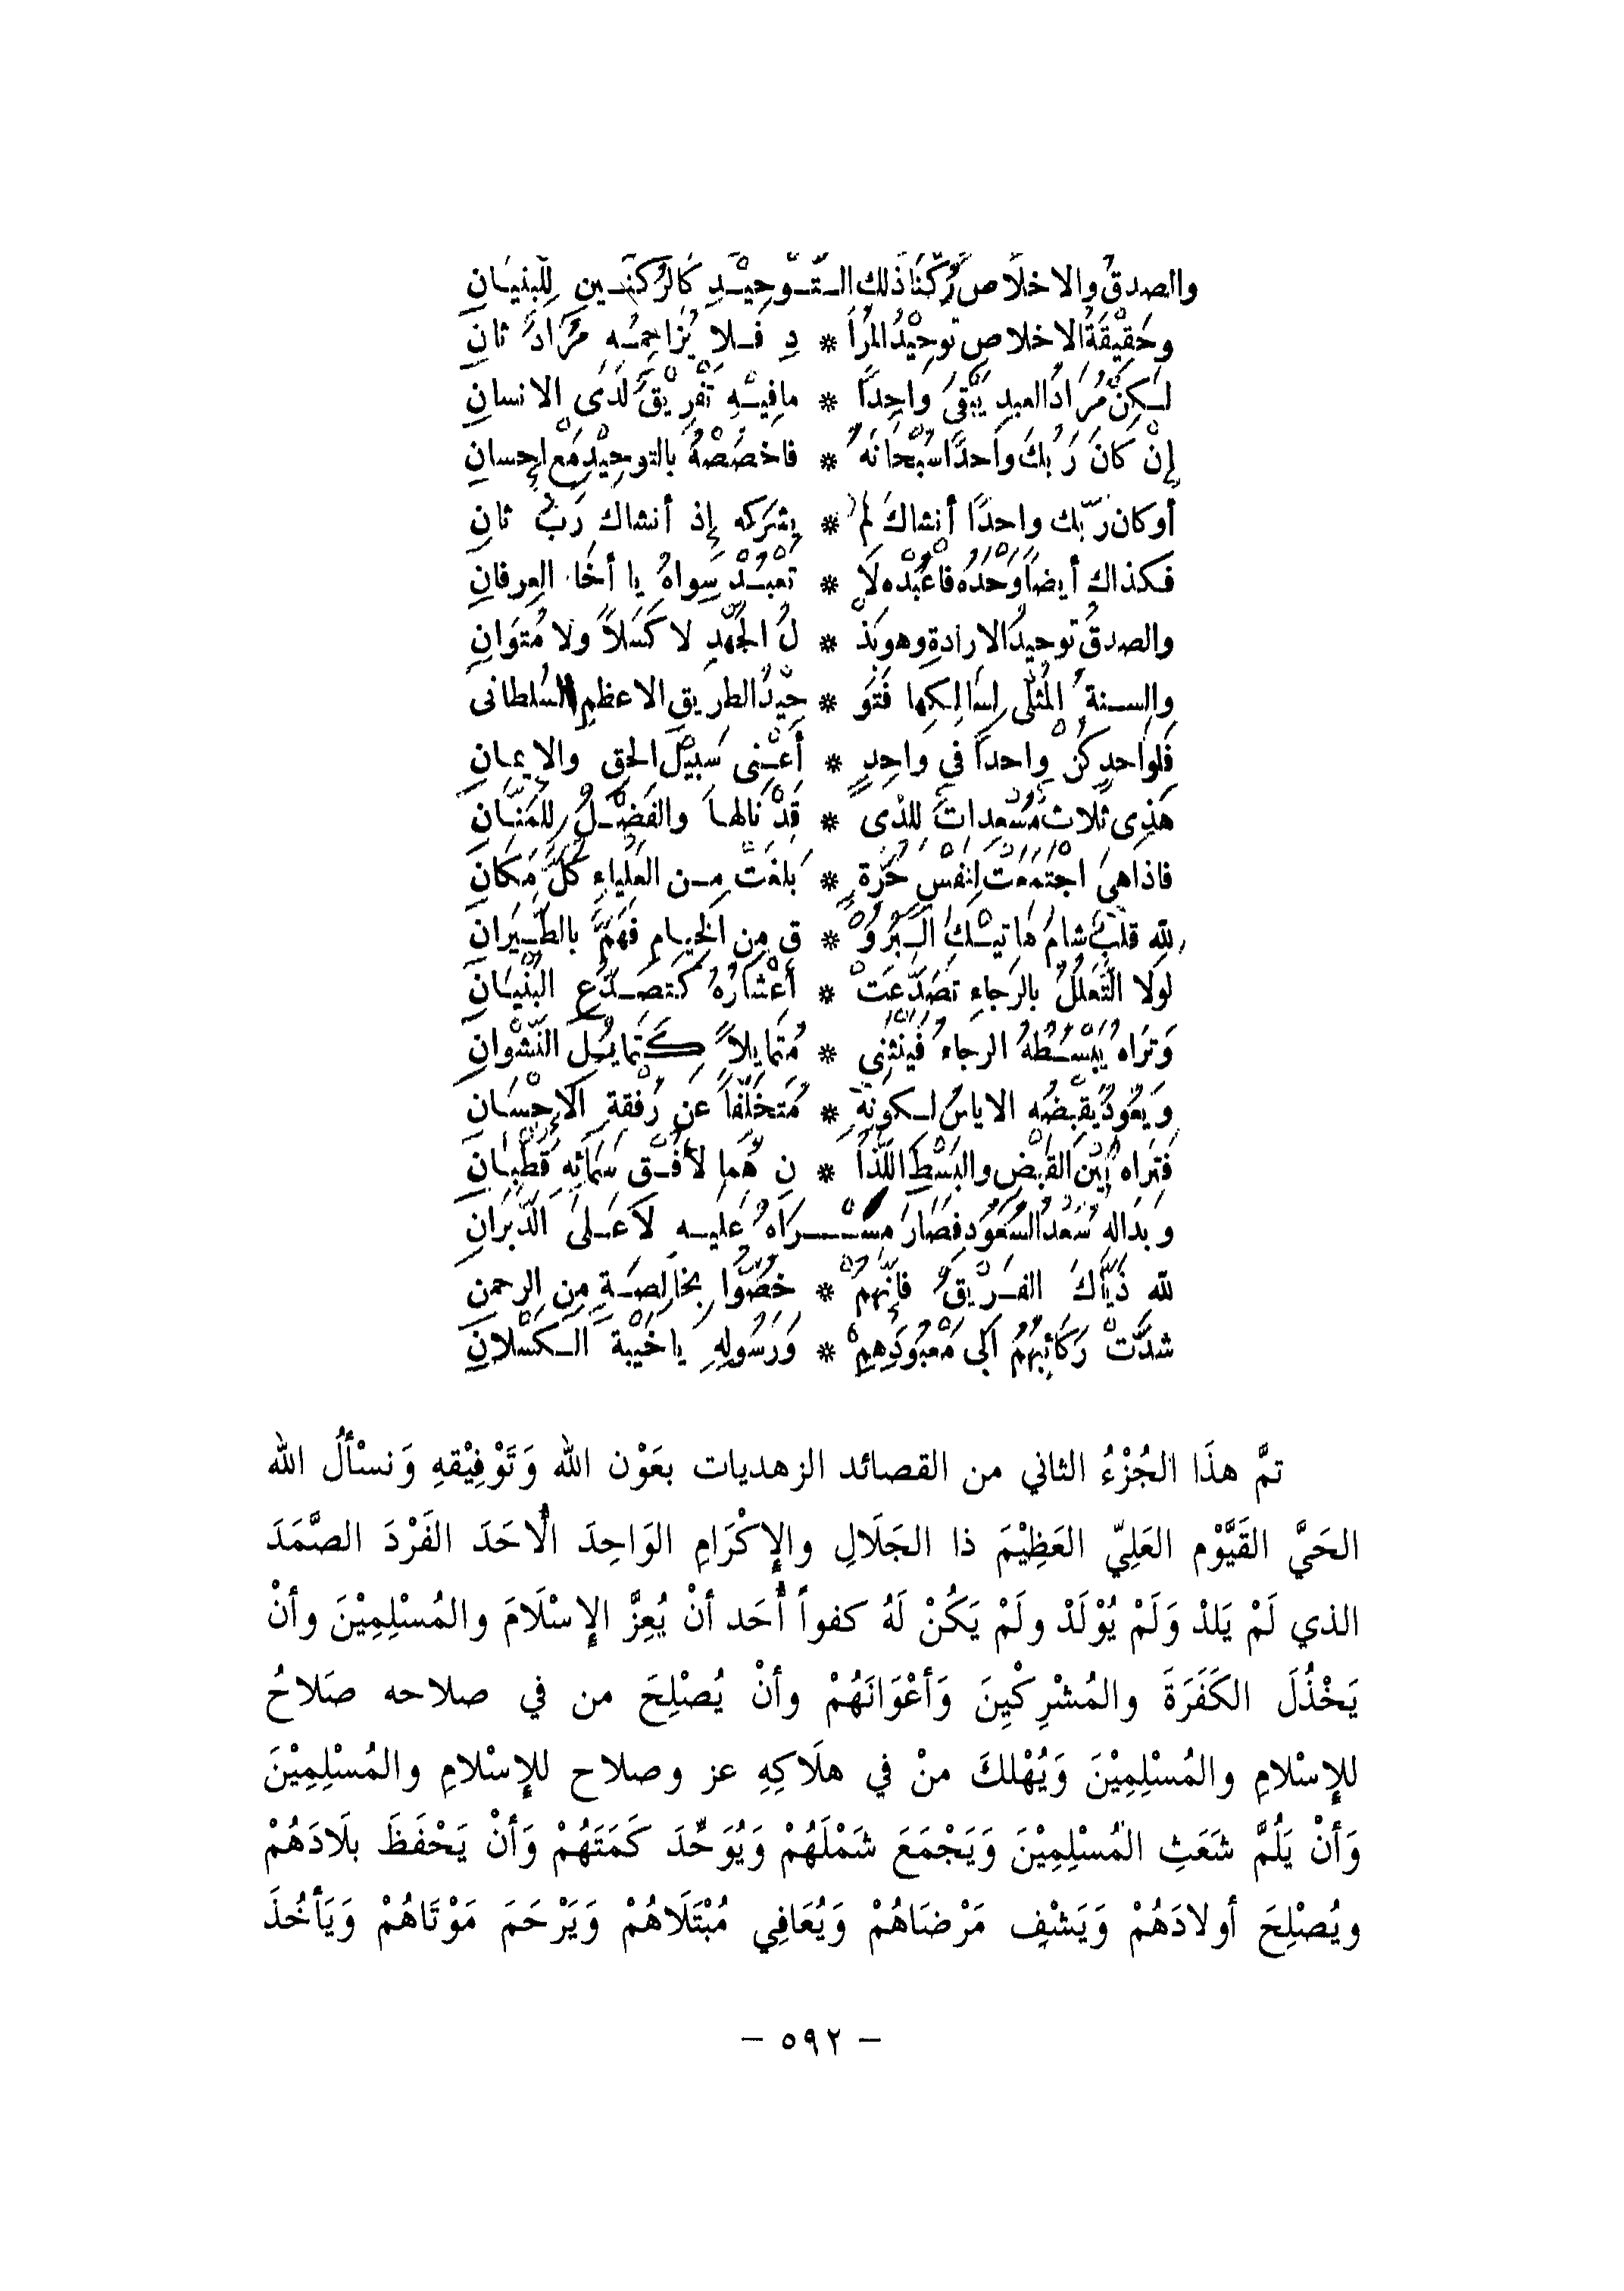 والصدقُ والاخلاصُ رُكْنَا ذَلك التَّوحِيْدِ كَالرُكنَينِ لِلْبُنيَانِ
وحَقِيْقَةُ الاخلاصِ توحِيْدُ المُرَا * دِ فَلا يُزَاحِمُهِ مُرَادٌ ثانِ
لَكِنْ مُرَادُ العبدِ يَبْقَى واحِدًا * مافِيهِ تَفْرِيْقٌ لَدَى الانسانِ
إِنْ كانَ رَبُّكَ واحدًا سُبْحَانَهُ * فاخصُصْهُ بالتوحِيْدِ مَعْ إحسانِ
أوكان رَبّك واحدًا أنشاكَ لم * يشرَكه إذ أنشاك رَبٌّ ثانِ
فكذاك أيضاً وَحْدَهُ فاعْبُدْه لَا * تَعْبُدْ سِواهُ يا أخَا العِرفانِ
والصدقُ توحيدُ الارادةِ وهو بَذْ * لُ الجُهْدِ لا كَسَلاً ولا مُتوَانِ
والسنةُ المُثْلَى لِسَالِكِها فَتَوْ * حِيْدُ الطريقِ الاعظمِ السُلطانى
فَلِوَاحدٍ كُنْ واحداً في واحِدٍ * أعْنِى سَبِيْلَ الحقِ والإيمانِ
هَذِى ثلاث مُسْعِدات للذى * قَدْ نالها والفَضْلُ لِلمَنّانِ
فاذا هىَ اجْتَمعَتْ لِنَفْسٍ حُرّةٍ * بَلغَتْ مِن العَلياءِ كُلَّ مَكَانِ
لله قلبٌ شامَ هَاتيْكِ البُرُوْ * ق مِن الخِيامِ فَهَمَّ بالطَّيَرانِ
لَولَا التَّعَلُلُ بالرَجاءِ تَصَدَّعَتْ * أعْشَارُهُ كَتَصَدُّعِ البُنْيَانِ
وَترَاه يَبْسُطُهُ الرجاءُ فَينثَنِى * مُتمايِلاً كَتمايُلِ النَشْوانِ
وَيَعُودُ يَقبِضُه الاياسُ لكونِهِ * مُتَخَلِّفاً عن رُفْقةِ الإحْسَانِ
فتَراه بَيْنَ القَبْضِ والبَسْطِ اللَّذَا * نِ هُما لأُفْقِ سَمَائِه قُطْبَانِ
وبَدَا له سَعْدُ السُعُودِ فصَارَ مَسْرَاهُ عَليه لَا عَلَى الدَّبَرانِ
لله ذَيَّاكَ الفَرِيْقُ فإنَّهمْ * خُصُّوا بِخَالِصَةٍ مِن الرحمنِ
شدَّتْ رَكَائبُهُمْ الَى مَعْبُودِهِمْ * وَرَسُولِهِ ياخَيْبةَ الكَسْلانِ
تمَّ هذَا الجُزْءُ الثاني من القصائد الزهديات بعَوْن الله وَتَوْفِيْقهِ وَنسْأَلُ الله
الحَيَّ القَيَّوْم العَلِيّ العَظِيْمَ ذا الجَلَالِ والإِكْرَامِ الوَاحِدَ الْأَحَدَ الفَرْدَ الصَّمَدَ
الذي لَمْ يَلدْ وَلَمْ يُوْلَدْ ولَمْ يَكُنْ لَهُ كفواً أَحَد أنْ يُعِزَّ الإِسْلَامَ والمُسْلِمِيْنَ وأنْ
يَخْذُلَ الكَفَرَةَ والمُشْرِكْيِنَ وَأعْوَانَهُمْ وأنْ يُصْلِحَ من في صلاحه صَلاحُ
للإِسْلامِ والمُسْلِمِيْنَ وَيُهْلكَ منْ في هلَاكِهِ عز وصلاح للإِسْلامِ والمُسْلِمِيْنَ
وَأنْ يَلُمَّ شَعَثِ المُسْلِمِيْنَ وَيَجْمَعَ شَمْلَهُمْ وَيُوَحِّدَ كَمَتَهُمْ وَأنْ يَحْفَظَ بلَادَهُمْ
ويُصْلِحَ أولادَهُمْ وَيَشْفِ مَرْضَاهُمْ وَيُعَافِي مُبْتَلَاهُمْ وَيَرْحَمَ مَوْتَاهُمْ وَيَأخُذَ
– ٥٩٢ –